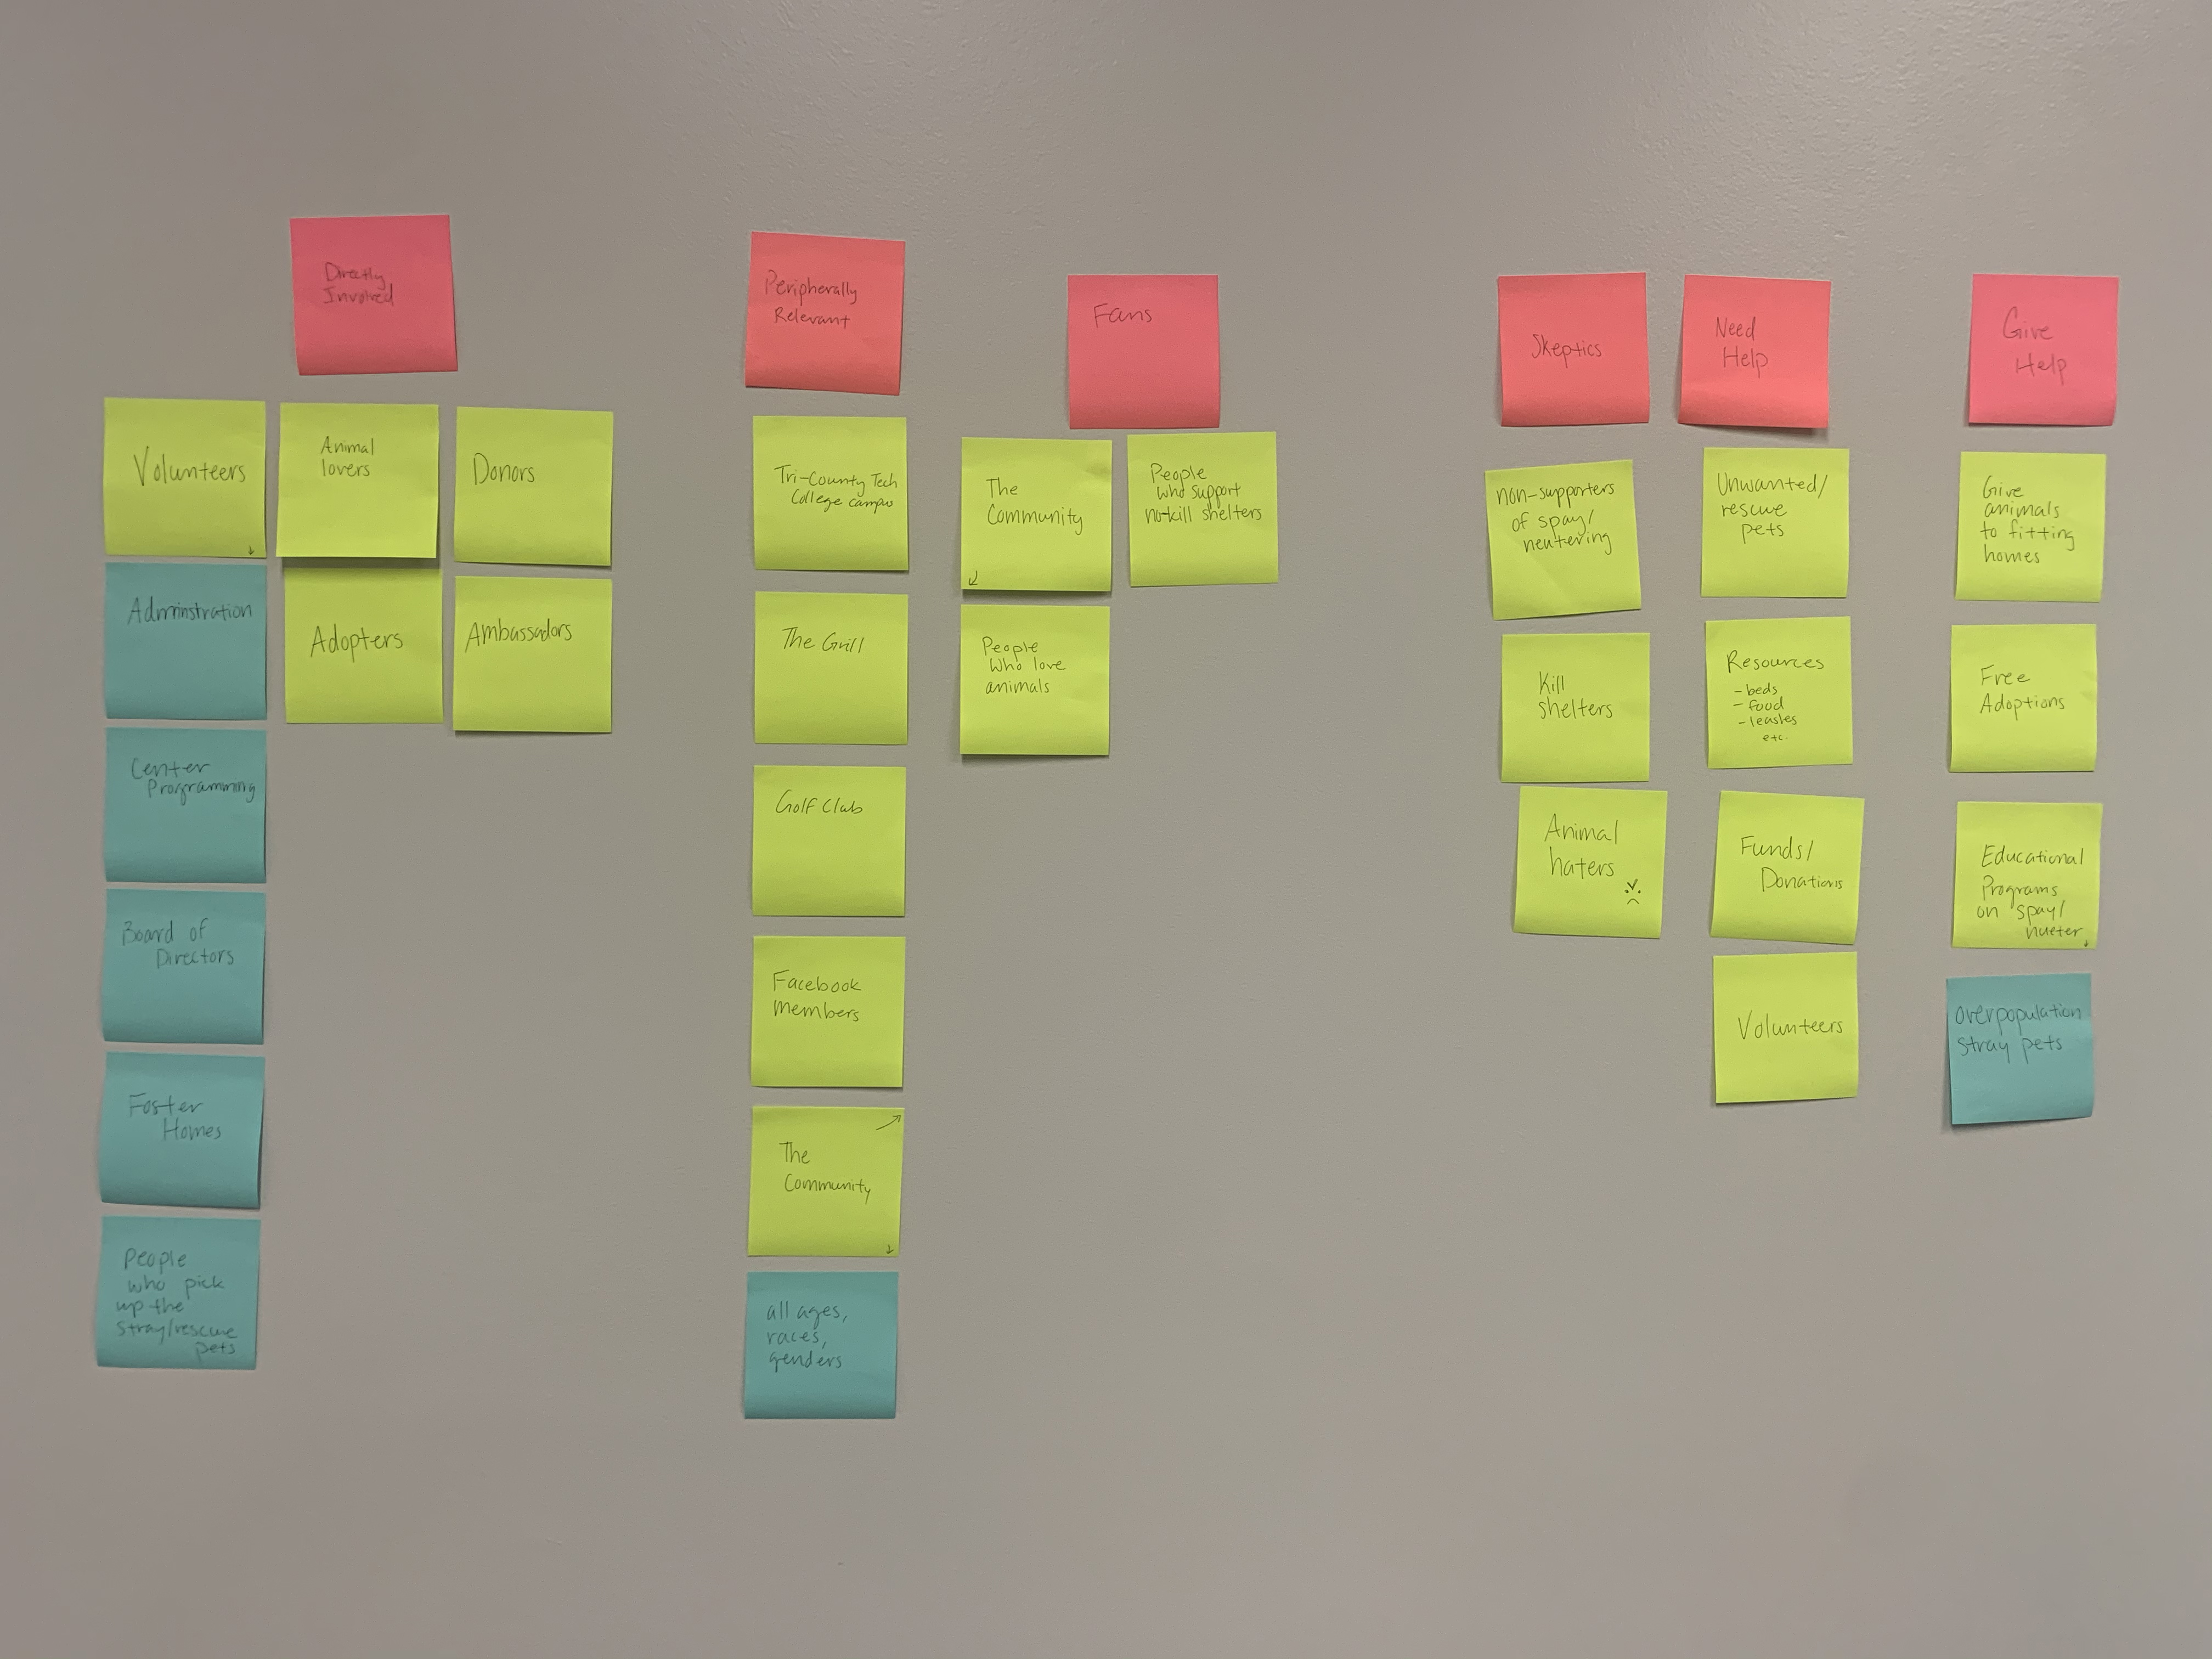 Directly
Involved
Volunteers
Animal
lovers
Donors
Administration
Adopters
Ambassadors
Center
Programming
Board of
Directors
Foster
Homes
People
who pick
up the
stray/rescue
pets
Peripherally
Relevant
Tri-County Tech
College campus
The Grill
Golf Club
Facebook
members
The
Community
all ages,
races,
genders
Fans
The
Community
People
who support
no-kill shelters
People
who love
animals
Skeptics
non-supporters
of spay/
neutering
Kill
shelters
Animal
haters
Need
Help
Unwanted/
rescue
pets
Resources
- beds
- food
- leashes
etc.
Funds/
Donations
Volunteers
Give
Help
Give
animals
to fitting
homes
Free
Adoptions
Educational
Programs
on spay/
nueter
overpopulation
stray pets